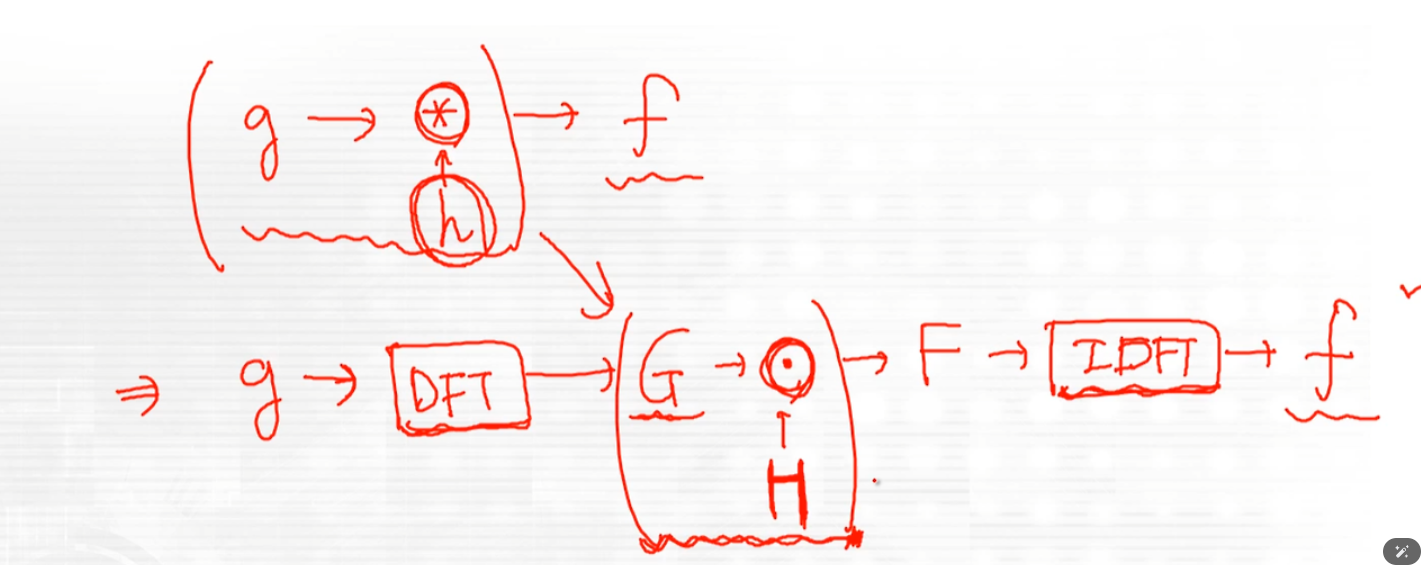 ( g → ⊛ ) → f
h
⇒ g → DFT → ( G → ⊙ ) → F → IDFT → f
H